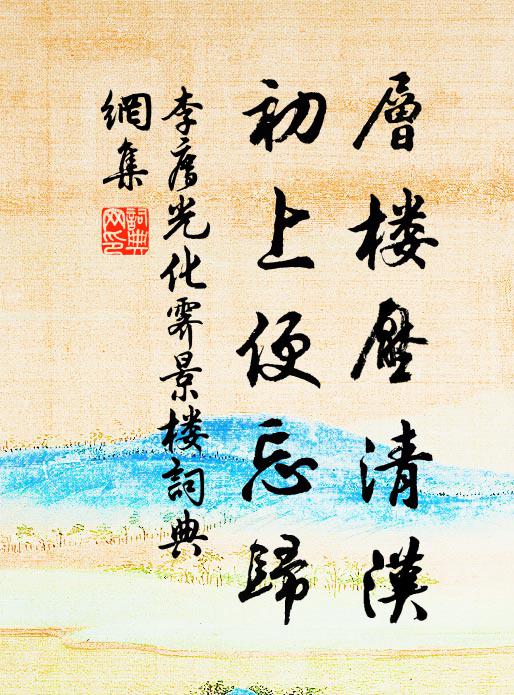 層楼壓清漢
初上便忘歸
李廌光化霽景楼詞典
網集
詞典
网印